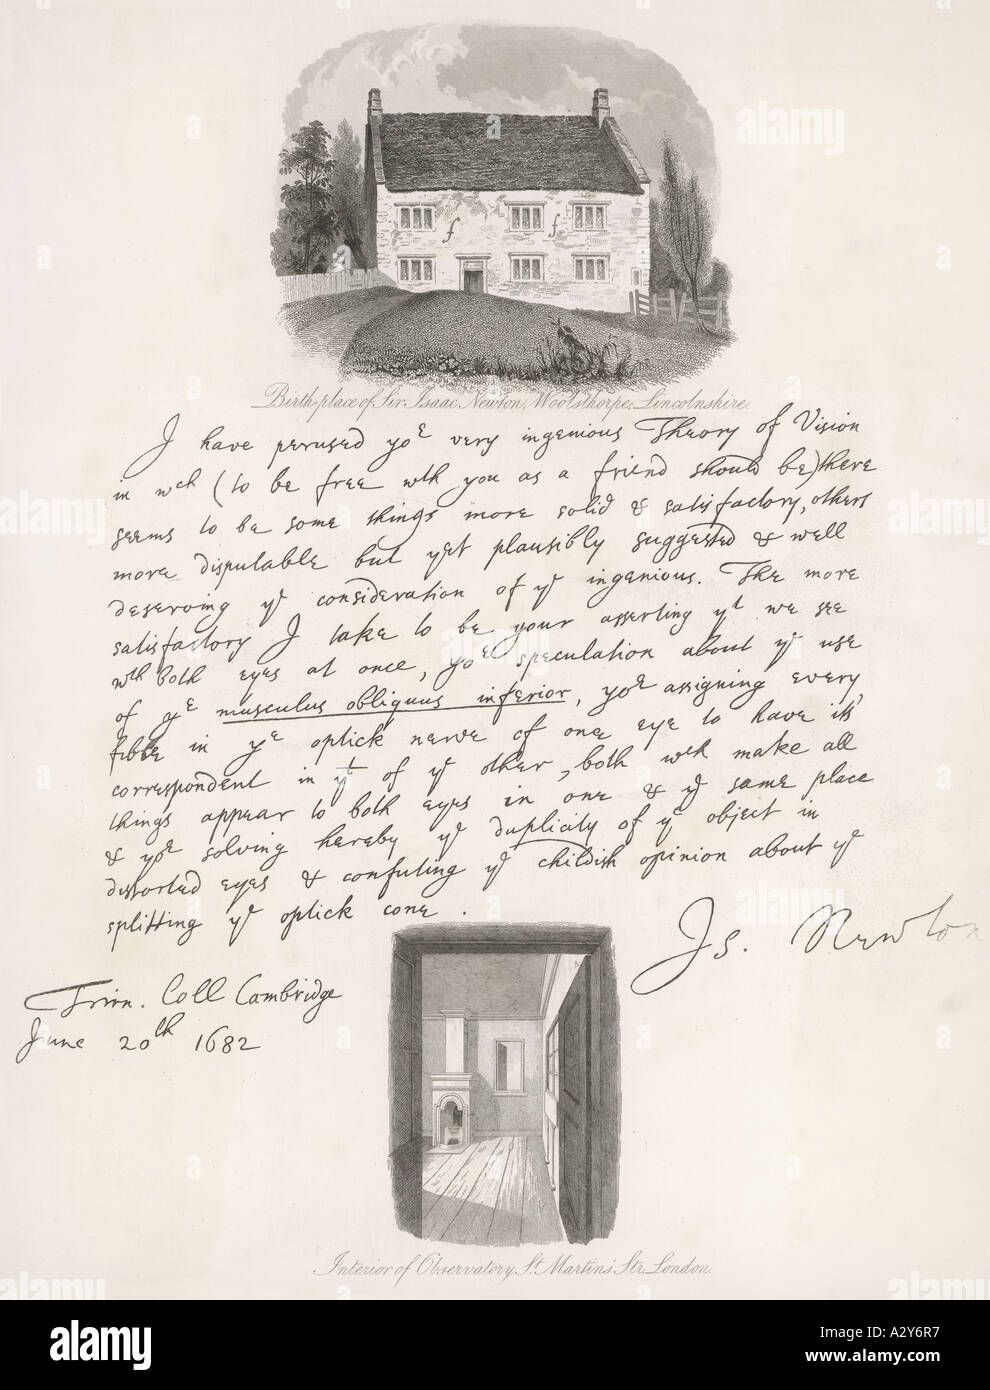 Birth-place of Sir Isaac Newton, Woolsthorpe, Lincolnshire.
I have perused yor very ingenious Theory of Vision
in wch (to be free wth you as a friend should be) there
seems to be some things more solid & satisfactory, others
more disputable but yet plausibly suggested & well
deserving ye consideration of ye ingenious. The more
satisfactory I take to be your asserting yt we see
wth both eyes at once, yor speculation about ye use
of ye musculus obliquus inferior, yor assigning every
fibre in ye optick nerve of one eye to have its
correspondent in yt of ye other, both wch make all
things appear to both eyes in one & ye same place
& yor solving hereby ye duplicity of ye object in
distorted eyes & confuting ye childish opinion about ye
splitting ye optick cone.
Is. Newton
Trin. Coll Cambridge
June 20th 1682
Interior of Observatory St. Martin's Str. London.
alamy
Image ID: A2Y6R7
www.alamy.com